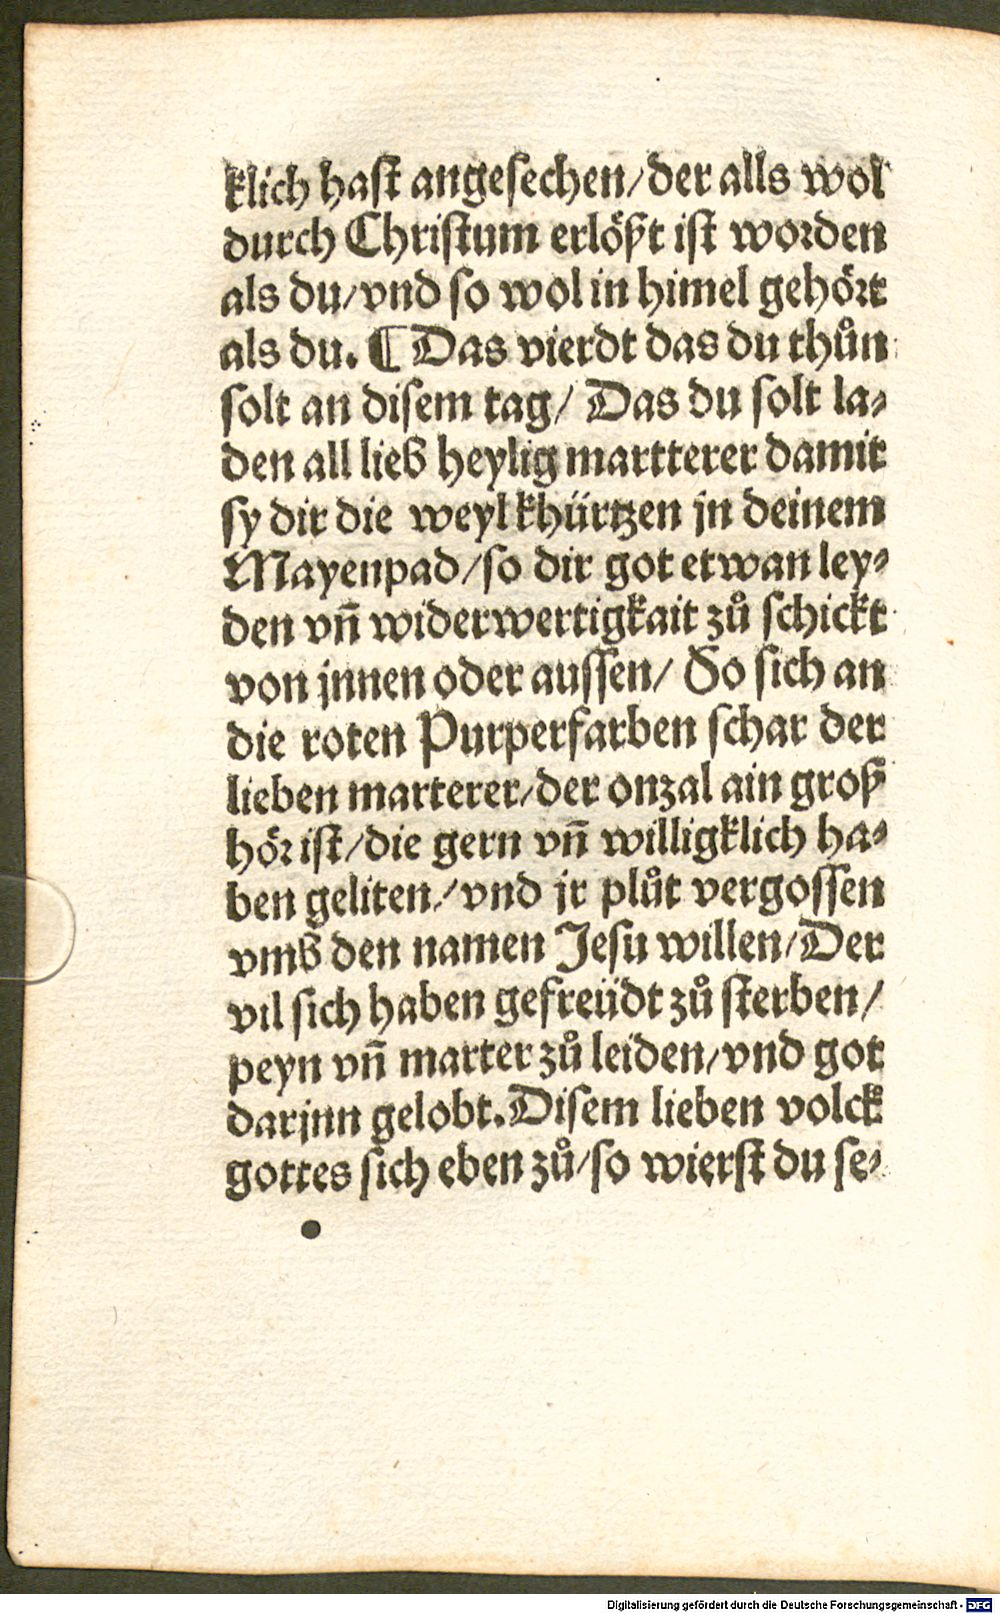 klich hast angesechen/der alls wol
durch Christum erlößt ist worden
als du/vnd so wol in himel gehört
als du. ¶ Das vierdt das du thůn
solt an disem tag/ Das du solt la⸗
den all lieb heylig martterer damit
sy dir die weyl khürtzen jn deinem
Mayenpad/so dir got etwan ley⸗
den vn̄ widerwertigkait zů schickt
von jnnen oder aussen/ So sich an
die roten Purperfarben schar der
lieben marterer/der onzal ain groß
hör ist/die gern vn̄ willigklich ha⸗
ben geliten/vnd jr plůt vergossen
vmb den namen Jesu willen/Der
vil sich haben gefreüdt zů sterben/
peyn vn̄ marter zů leiden/vnd got
darjnn gelobt.Disem lieben volck
gottes sich eben zů/so wierst du se⸗
Digitalisierung gefördert durch die Deutsche Forschungsgemeinschaft - DFG